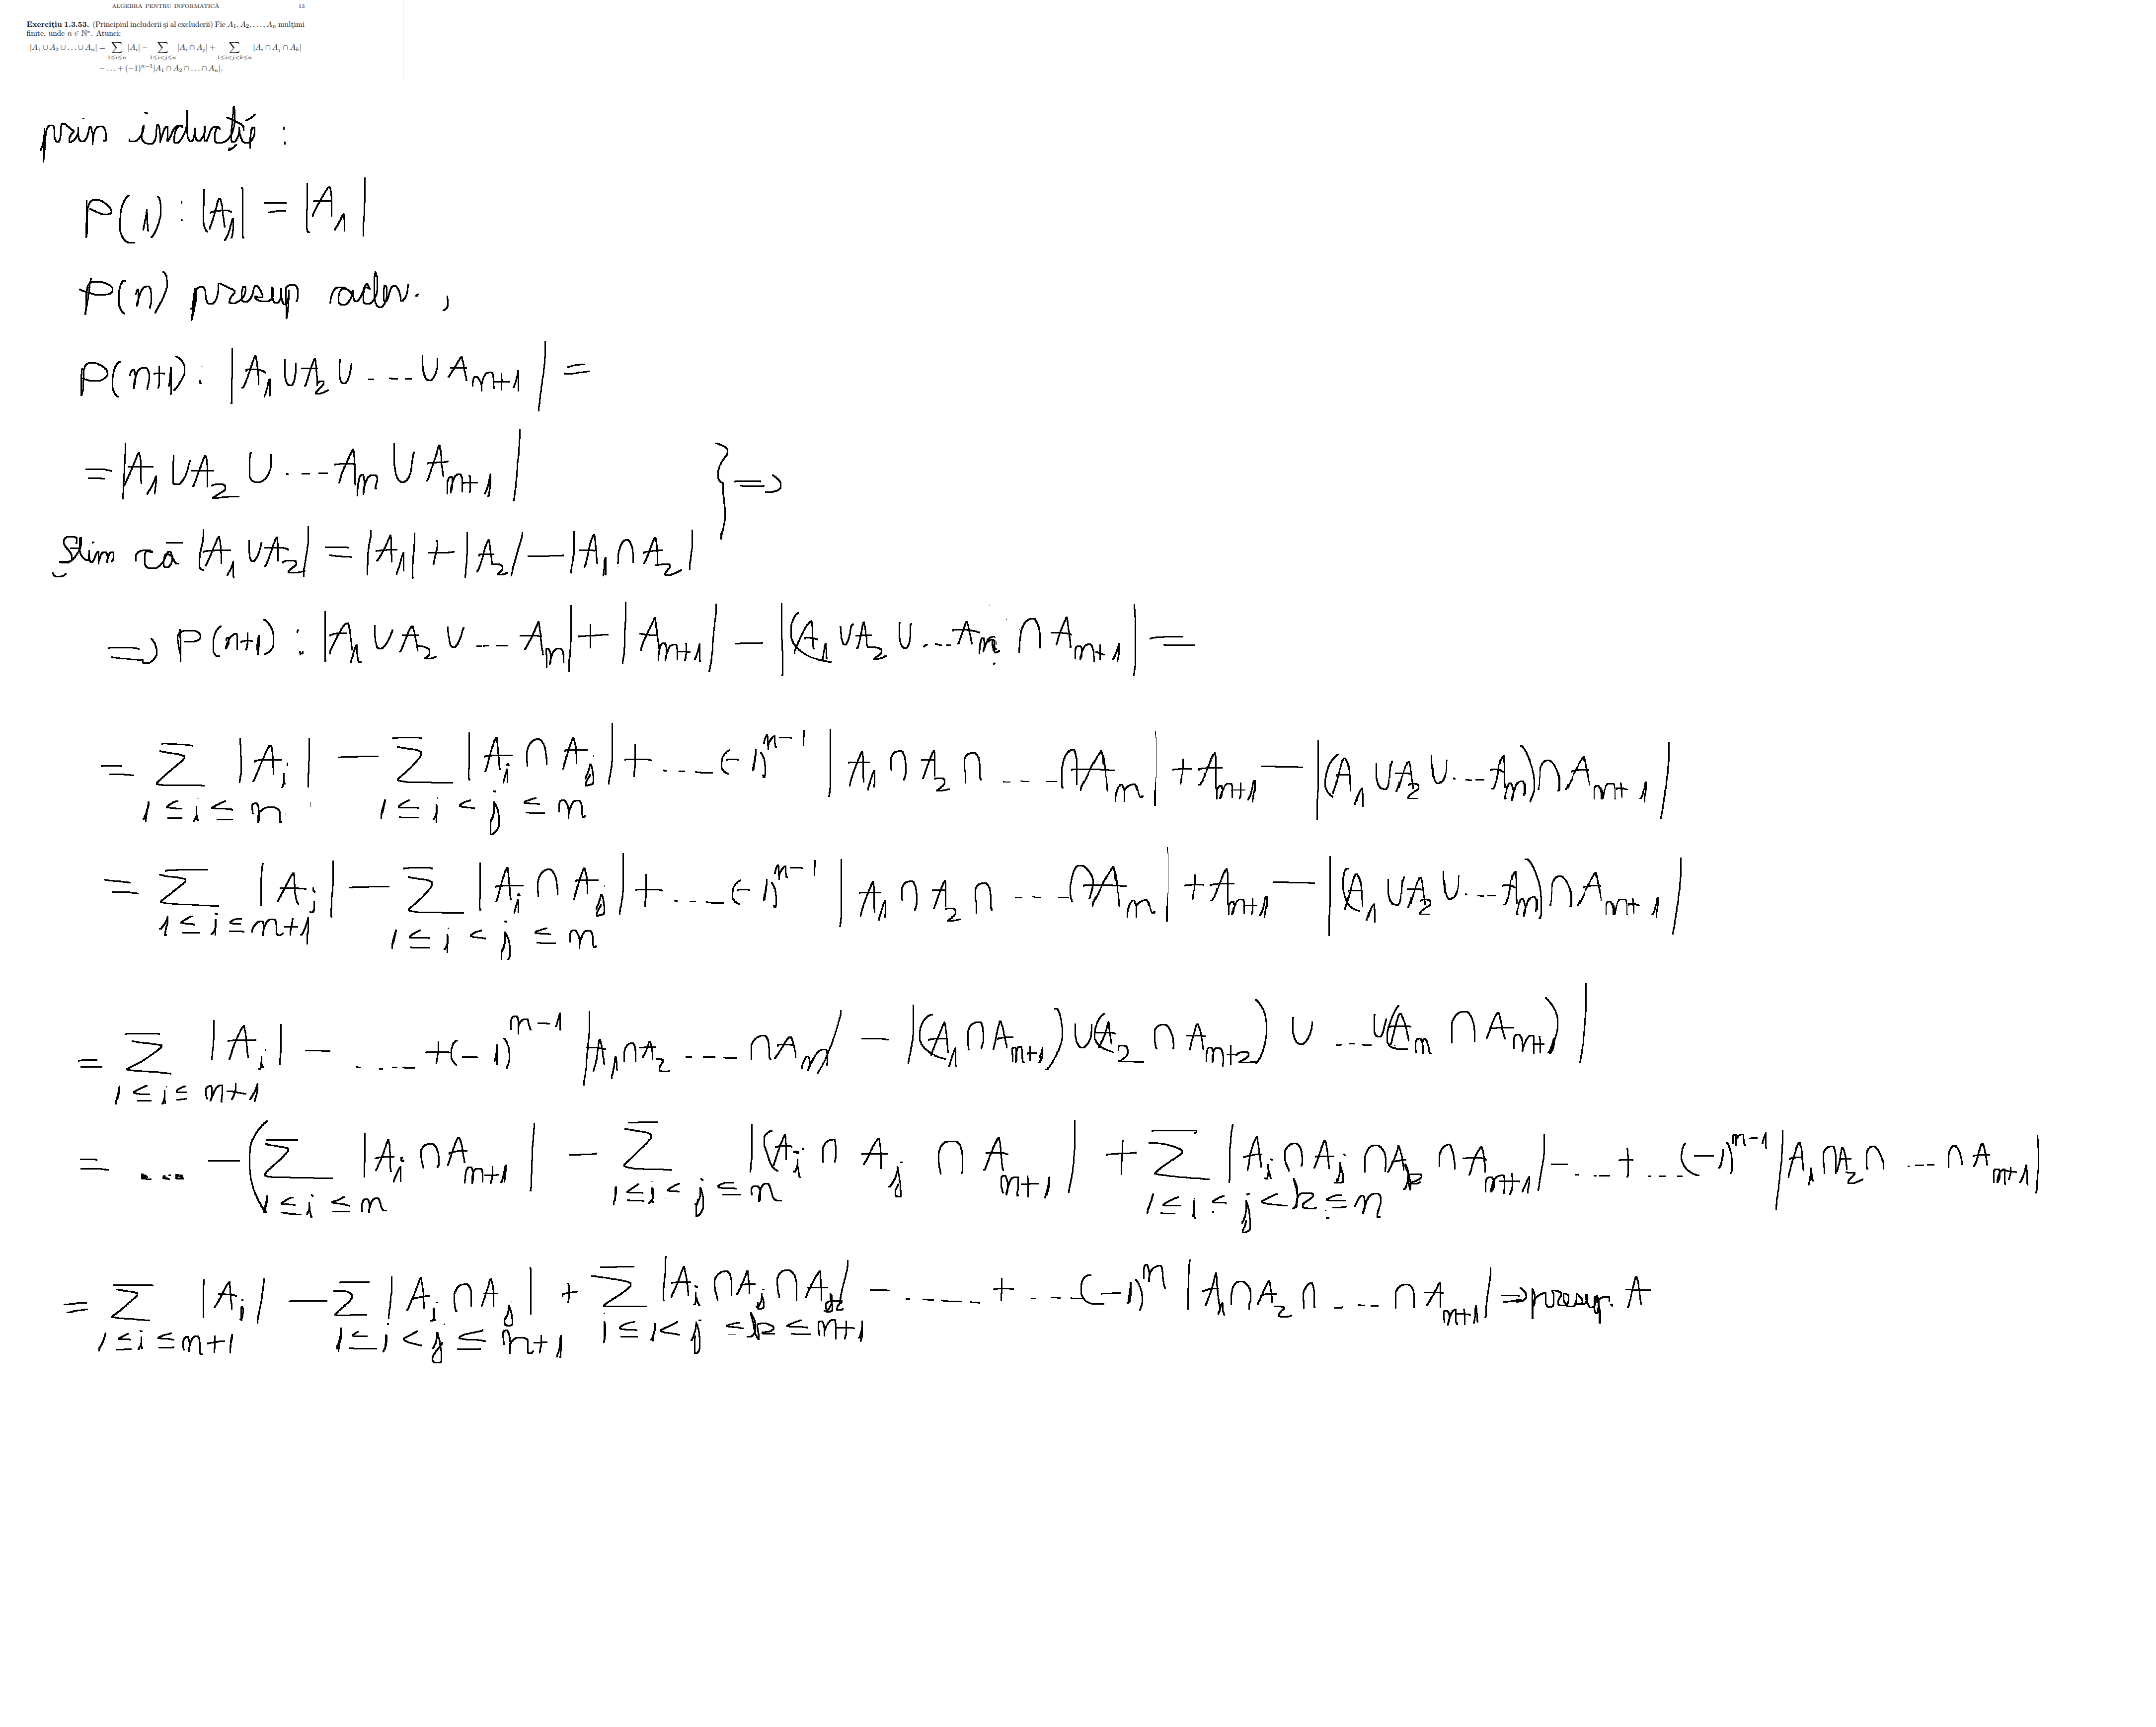 ALGEBRA PENTRU INFORMATICĂ 13
Exercițiu 1.3.53. (Principiul includerii și al excluderii) Fie A₁, A₂, …, Aₙ mulțimi
finite, unde n ∈ ℕ*. Atunci:
|A₁ ∪ A₂ ∪ … ∪ Aₙ| = ∑_{1≤i≤n} |Aᵢ| − ∑_{1≤i<j≤n} |Aᵢ ∩ Aⱼ| + ∑_{1≤i<j<k≤n} |Aᵢ ∩ Aⱼ ∩ Aₖ|
− … + (−1)^{n−1}|A₁ ∩ A₂ ∩ … ∩ Aₙ|.
prin inducție :
P(1) : |A₁| = |A₁|
P(n) presup adev. ,
P(n+1) : |A₁ ∪ A₂ ∪ .... ∪ A_{n+1}| =
= |A₁ ∪ A₂ ∪ ... Aₙ ∪ A_{n+1}| } =>
Știm că |A₁ ∪ A₂| = |A₁| + |A₂| − |A₁ ∩ A₂|
=> P(n+1) : |A₁ ∪ A₂ ∪ ... Aₙ| + |A_{n+1}| − |(A₁ ∪ A₂ ∪ ... Aₙ ∩ A_{n+1}| =
= ∑_{1≤i≤n} |Aᵢ| − ∑_{1≤i<j≤n} |Aᵢ ∩ Aⱼ| + .... (−1)^{n−1} |A₁ ∩ A₂ ∩ .... ∩ Aₙ| + A_{n+1} − |(A₁ ∪ A₂ ∪ ... Aₙ) ∩ A_{n+1}|
= ∑_{1≤i≤n+1} |Aᵢ| − ∑_{1≤i<j≤n} |Aᵢ ∩ Aⱼ| + .... (−1)^{n−1} |A₁ ∩ A₂ ∩ .... ∩ Aₙ| + A_{n+1} − |(A₁ ∪ A₂ ∪ ... Aₙ) ∩ A_{n+1}|
= ∑_{1≤i≤n+1} |Aᵢ| − .... + (−1)^{n−1} |A₁ ∩ A₂ .... ∩ Aₙ| − |(A₁ ∩ A_{n+1}) ∪ (A₂ ∩ A_{n+2}) ∪ ... ∪ (Aₙ ∩ A_{n+1})|
= ... − (∑_{1≤i≤n} |Aᵢ ∩ A_{n+1}| − ∑_{1≤i<j≤n} |(Aᵢ ∩ Aⱼ ∩ A_{n+1}| + ∑_{1≤i<j<k≤n} |Aᵢ ∩ Aⱼ ∩ Aₖ ∩ A_{n+1}| − ... + ... (−1)^{n−1} |A₁ ∩ A₂ ∩ ... ∩ A_{n+1}|
= ∑_{1≤i≤n+1} |Aᵢ| − ∑_{1≤i<j≤n+1} |Aᵢ ∩ Aⱼ| + ∑_{1≤i<j≤k≤n+1} |Aᵢ ∩ Aⱼ ∩ Aₖ| − ..... + ... (−1)ⁿ |A₁ ∩ A₂ ∩ .... ∩ A_{n+1}| => presup. A